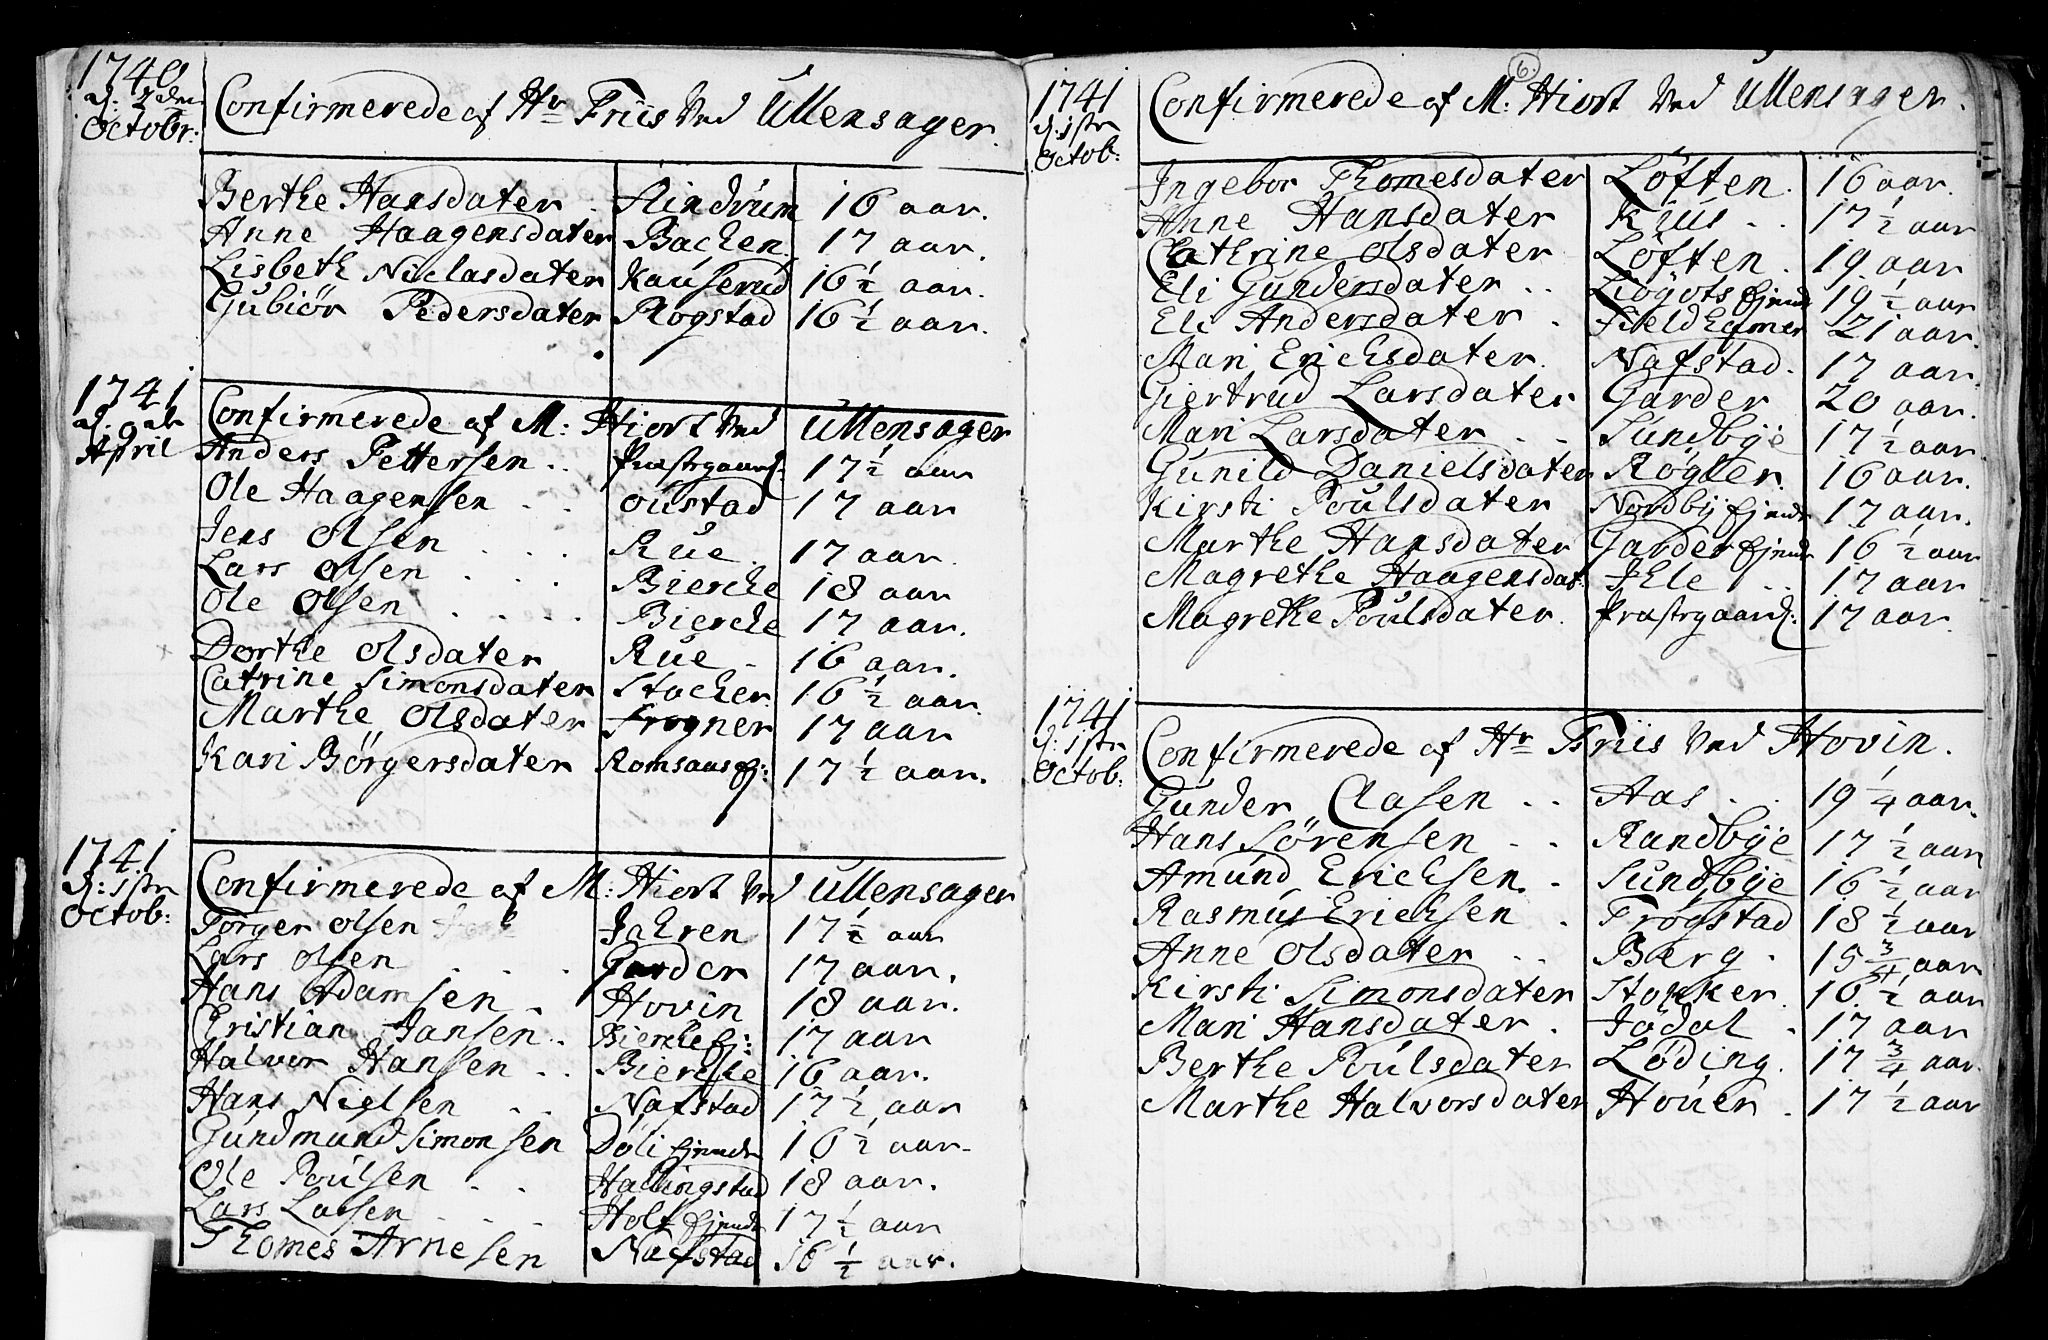 1740
d: 2den
Octobr:
Confirmerede af Hr Friis Ved Ullensager.
Berthe Hansdater . Rindrum 16 aar.
Anne Haagensdater Bachen 17 aar.
Lisbeth Niclasdater Kauserud 16 1/2 aar.
Gubiør Pedersdater Rogstad 16 1/2 aar.
1741
April
Confirmerede af M: Hiort Ved Ullensager
Anders Pettersen .. Præstgaard: 17 1/2 aar
Ole Haagensen . . Oustad 17 aar
Jens Olsen . . . Rue . 17 aar.
Lars Olsen . . . Bierche 18 aar
Ole Olsen . . . . Bierche 17 aar.
Dorthe Olsdater Rue - 16 aar.
Catrine Simonsdater Stocker 16 1/2 aar.
Marthe Olsdater Frogner 17 aar
Kari Børgersdater Romsaas ej: 17 1/2 aar.
1741
d: 1ste
Octob:
Confirmerede af M: Hiort Ved Ullensager
Torger Olsen Jahren 17 1/2 aar
Lars Olsen . . . Garder 17 aar.
Hans Adamsen . Hovin 18 aar.
Cristian Jansen . Bierche ej: 17 aar
Halvor Hansen . . Bierche 16 aar.
Hans Nielsen . . Nafstad 17 1/2 aar
Gundmund Simonsen Døli ejende 16 1/2 aar.
Ole Poulsen . . Hallingstad 18 aar.
Lars Larsen . . . Holt ejende 17 1/2 aar
Thomes Arnesen Nafstad 16 1/2 aar.
6.
1741
d: 1ste
Octob:
Confirmerede af M: Hiort Ved Ullensager.
Ingebor Thomesdater Løften. 16 aar.
Anne Hansdater Kius . . 17 1/2 aar
Cathrine Olsdater Løften . 19 aar
Eli Gundersdater .. Liøgots ejende 19 1/2 aar
Eli Andersdater . Fieldhamer 21 aar.
Mari Erichsdater. Nafstad. 17 aar.
Giertrud Larsdater Garder 20 aar.
Mari Larsdater . . Sundbye 17 1/2 aar.
Gunild Danielsdater Røgler. 16 aar.
Kirsti Poulsdater Nordbij ejende 17 aar.
Marthe Hansdater Garder ejende 16 1/2 aar
Magrethe Haagensdat: Ihle . . 17 aar
Magrethe Poulsdater. Præstgaard: 17 aar
1741
d: 1ste
Octob:
Confirmerede af Hr Friis Ved Hovin.
Gunder Clasen . . Aas . . 19 1/4 aar.
Hans Sørensen . . Randbye 17 1/2 aar
Amund Erichsen. . Sundbye 16 1/2 aar
Rasmus Erichsen . Frøgstad 18 1/2 aar
Anne Olsdater . . Berg . 15 3/4 aar
Kirsti Simonsdater Stokker. 16 1/2 aar
Mari Hansdater . Jødal . 17 aar
Berthe Poulsdater Løding. 17 3/4 aar.
Marthe Halvorsdater Houer . 17 1/2 aar